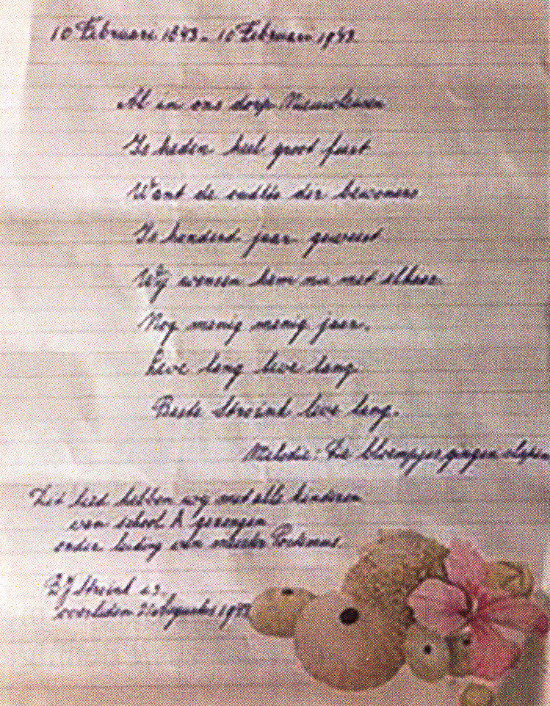 10 Februari 1843 - 10 Februari 1943
Al in ons dorp Nieuwleusen
Is heden heel groot feest
Want de oudste der bewoners
Is honderd jaar geweest
Wij wensen hem nu met elkaar
Nog menig menig jaar.
Leve lang leve lang
Beste Stroink leve lang.
Melodie: De bloempjes gingen slapen
Dit lied hebben wij met alle kinderen
van school A gezongen
onder leiding van meester
Stroink
overleden Augustus